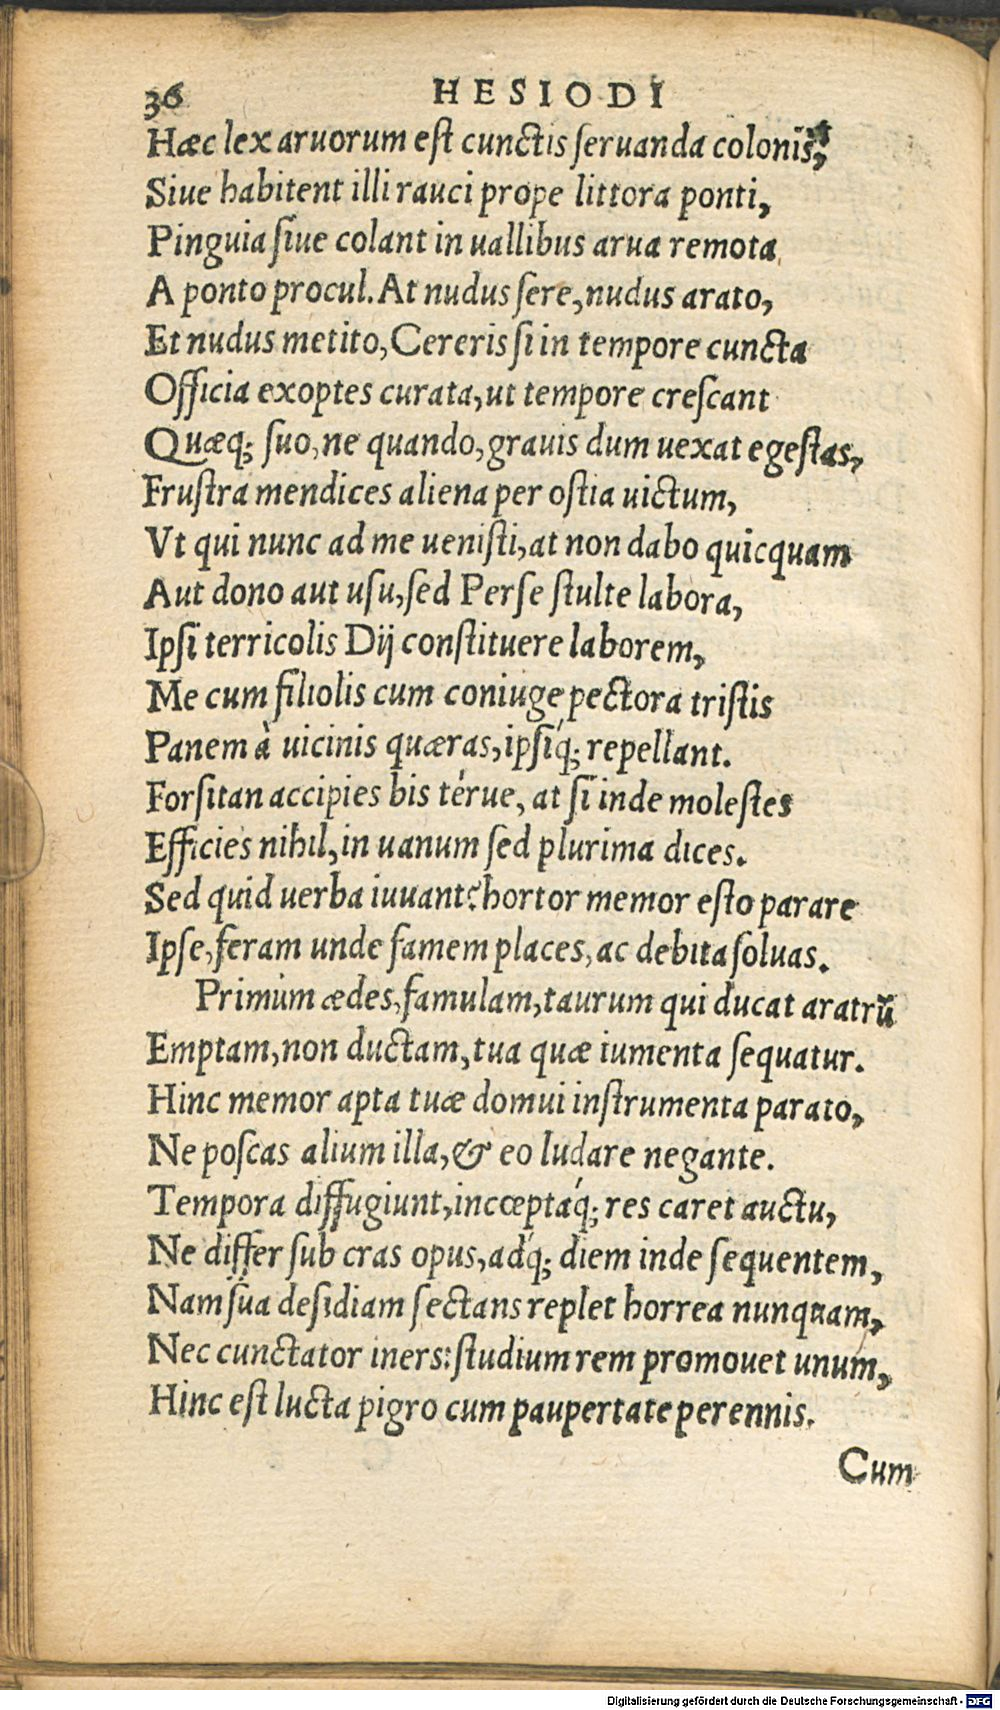 36 HESIODI
Hæc lex aruorum est cunctis seruanda colonis,
Siue habitent illi rauci prope littora ponti,
Pinguia siue colant in uallibus arua remota
A ponto procul. At nudus sere, nudus arato,
Et nudus metito, Cereris si in tempore cuncta
Officia exoptes curata, ut tempore crescant
Quæq; suo, ne quando, grauis dum uexat egestas,
Frustra mendices aliena per ostia uictum,
Vt qui nunc ad me uenisti, at non dabo quicquam
Aut dono aut usu, sed Perse stulte labora,
Ipsi terricolis Dij constituere laborem,
Me cum filiolis cum coniuge pectora tristis
Panem à uicinis quæras, ipsiq́; repellant.
Forsitan accipies bis térue, at si inde molestes
Efficies nihil, in uanum sed plurima dices.
Sed quid uerba iuuant? hortor memor esto parare
Ipse, feram unde famem places, ac debita soluas.
Primùm ædes, famulam, taurum qui ducat aratrũ
Emptam, non ductam, tua quæ iumenta sequatur.
Hinc memor apta tuæ domui instrumenta parato,
Ne poscas alium illa, & eo ludare negante.
Tempora diffugiunt, incœptaq́; res caret auctu,
Ne differ sub cras opus, adq́; diem inde sequentem,
Nam sua desidiam sectans replet horrea nunquam,
Nec cunctator iners: studium rem promouet unum,
Hinc est lucta pigro cum paupertate perennis.
Cum
Digitalisierung gefördert durch die Deutsche Forschungsgemeinschaft - DFG